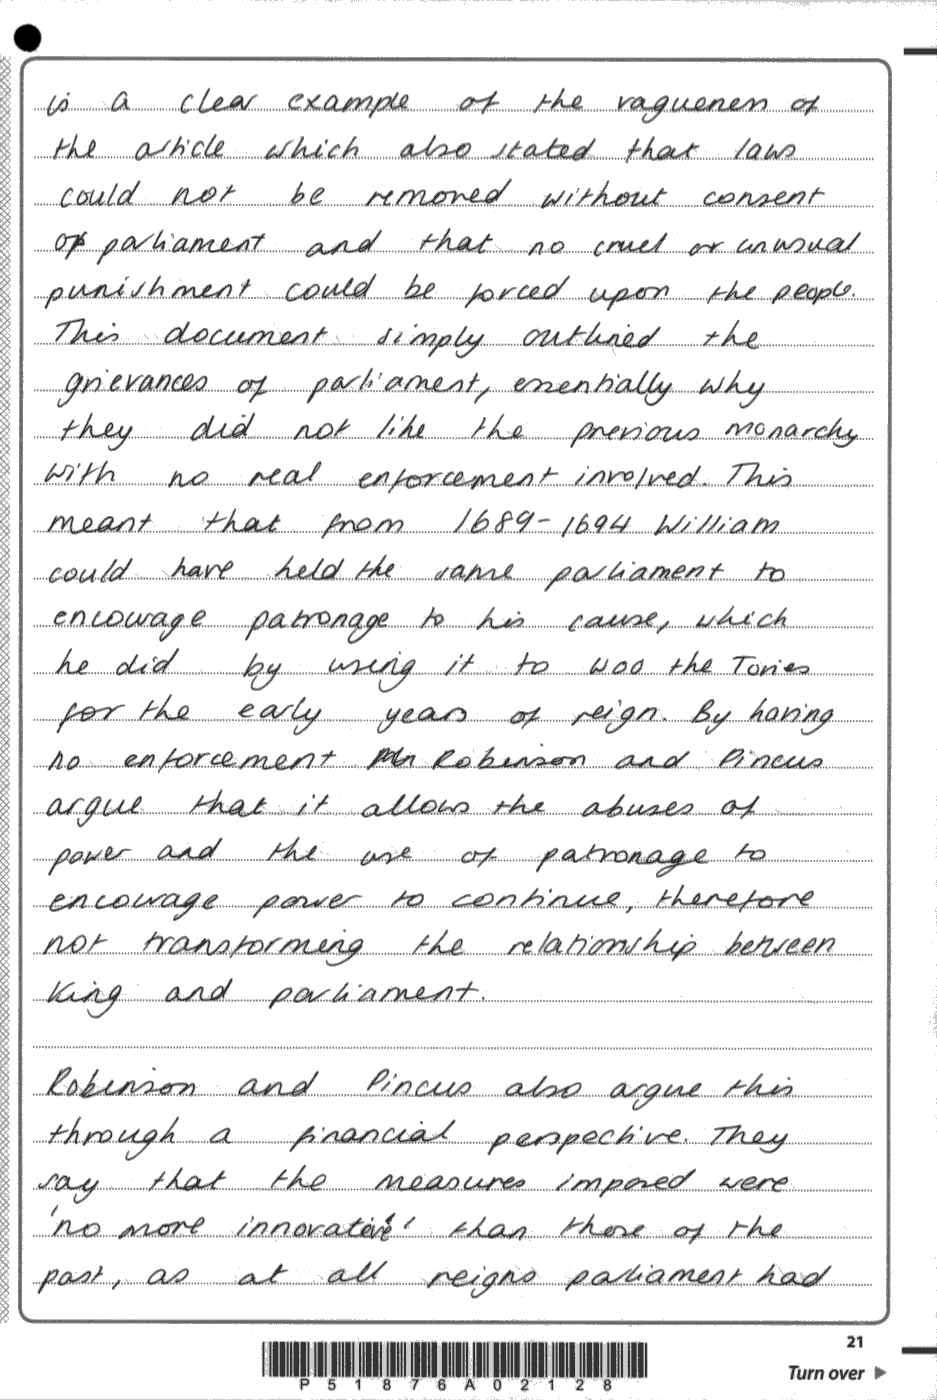 is a clear example of the vagueness of
the article which also stated that laws
could not be removed without consent
of parliament and that no cruel or unusual
punishment could be forced upon the people.
This document simply outlined the
grievances of parliament, essentially why
they did not like the previous monarchy
with no real enforcement involved. This
meant that from 1689-1694 William
could have held the same parliament to
encourage patronage to his cause, which
he did by using it to woo the Tories
for the early years of reign. By having
no enforcement Robinson and Pincus
argue that it allows the abuses of
power and the use of patronage to
encourage power to continue, therefore
not transforming the relationship between
King and parliament.
Robinson and Pincus also argue this
through a financial perspective. They
say that the measures imposed were
'no more innovative' than those of the
past, as at all reigns parliament had
21
P51876A02128
Turn over